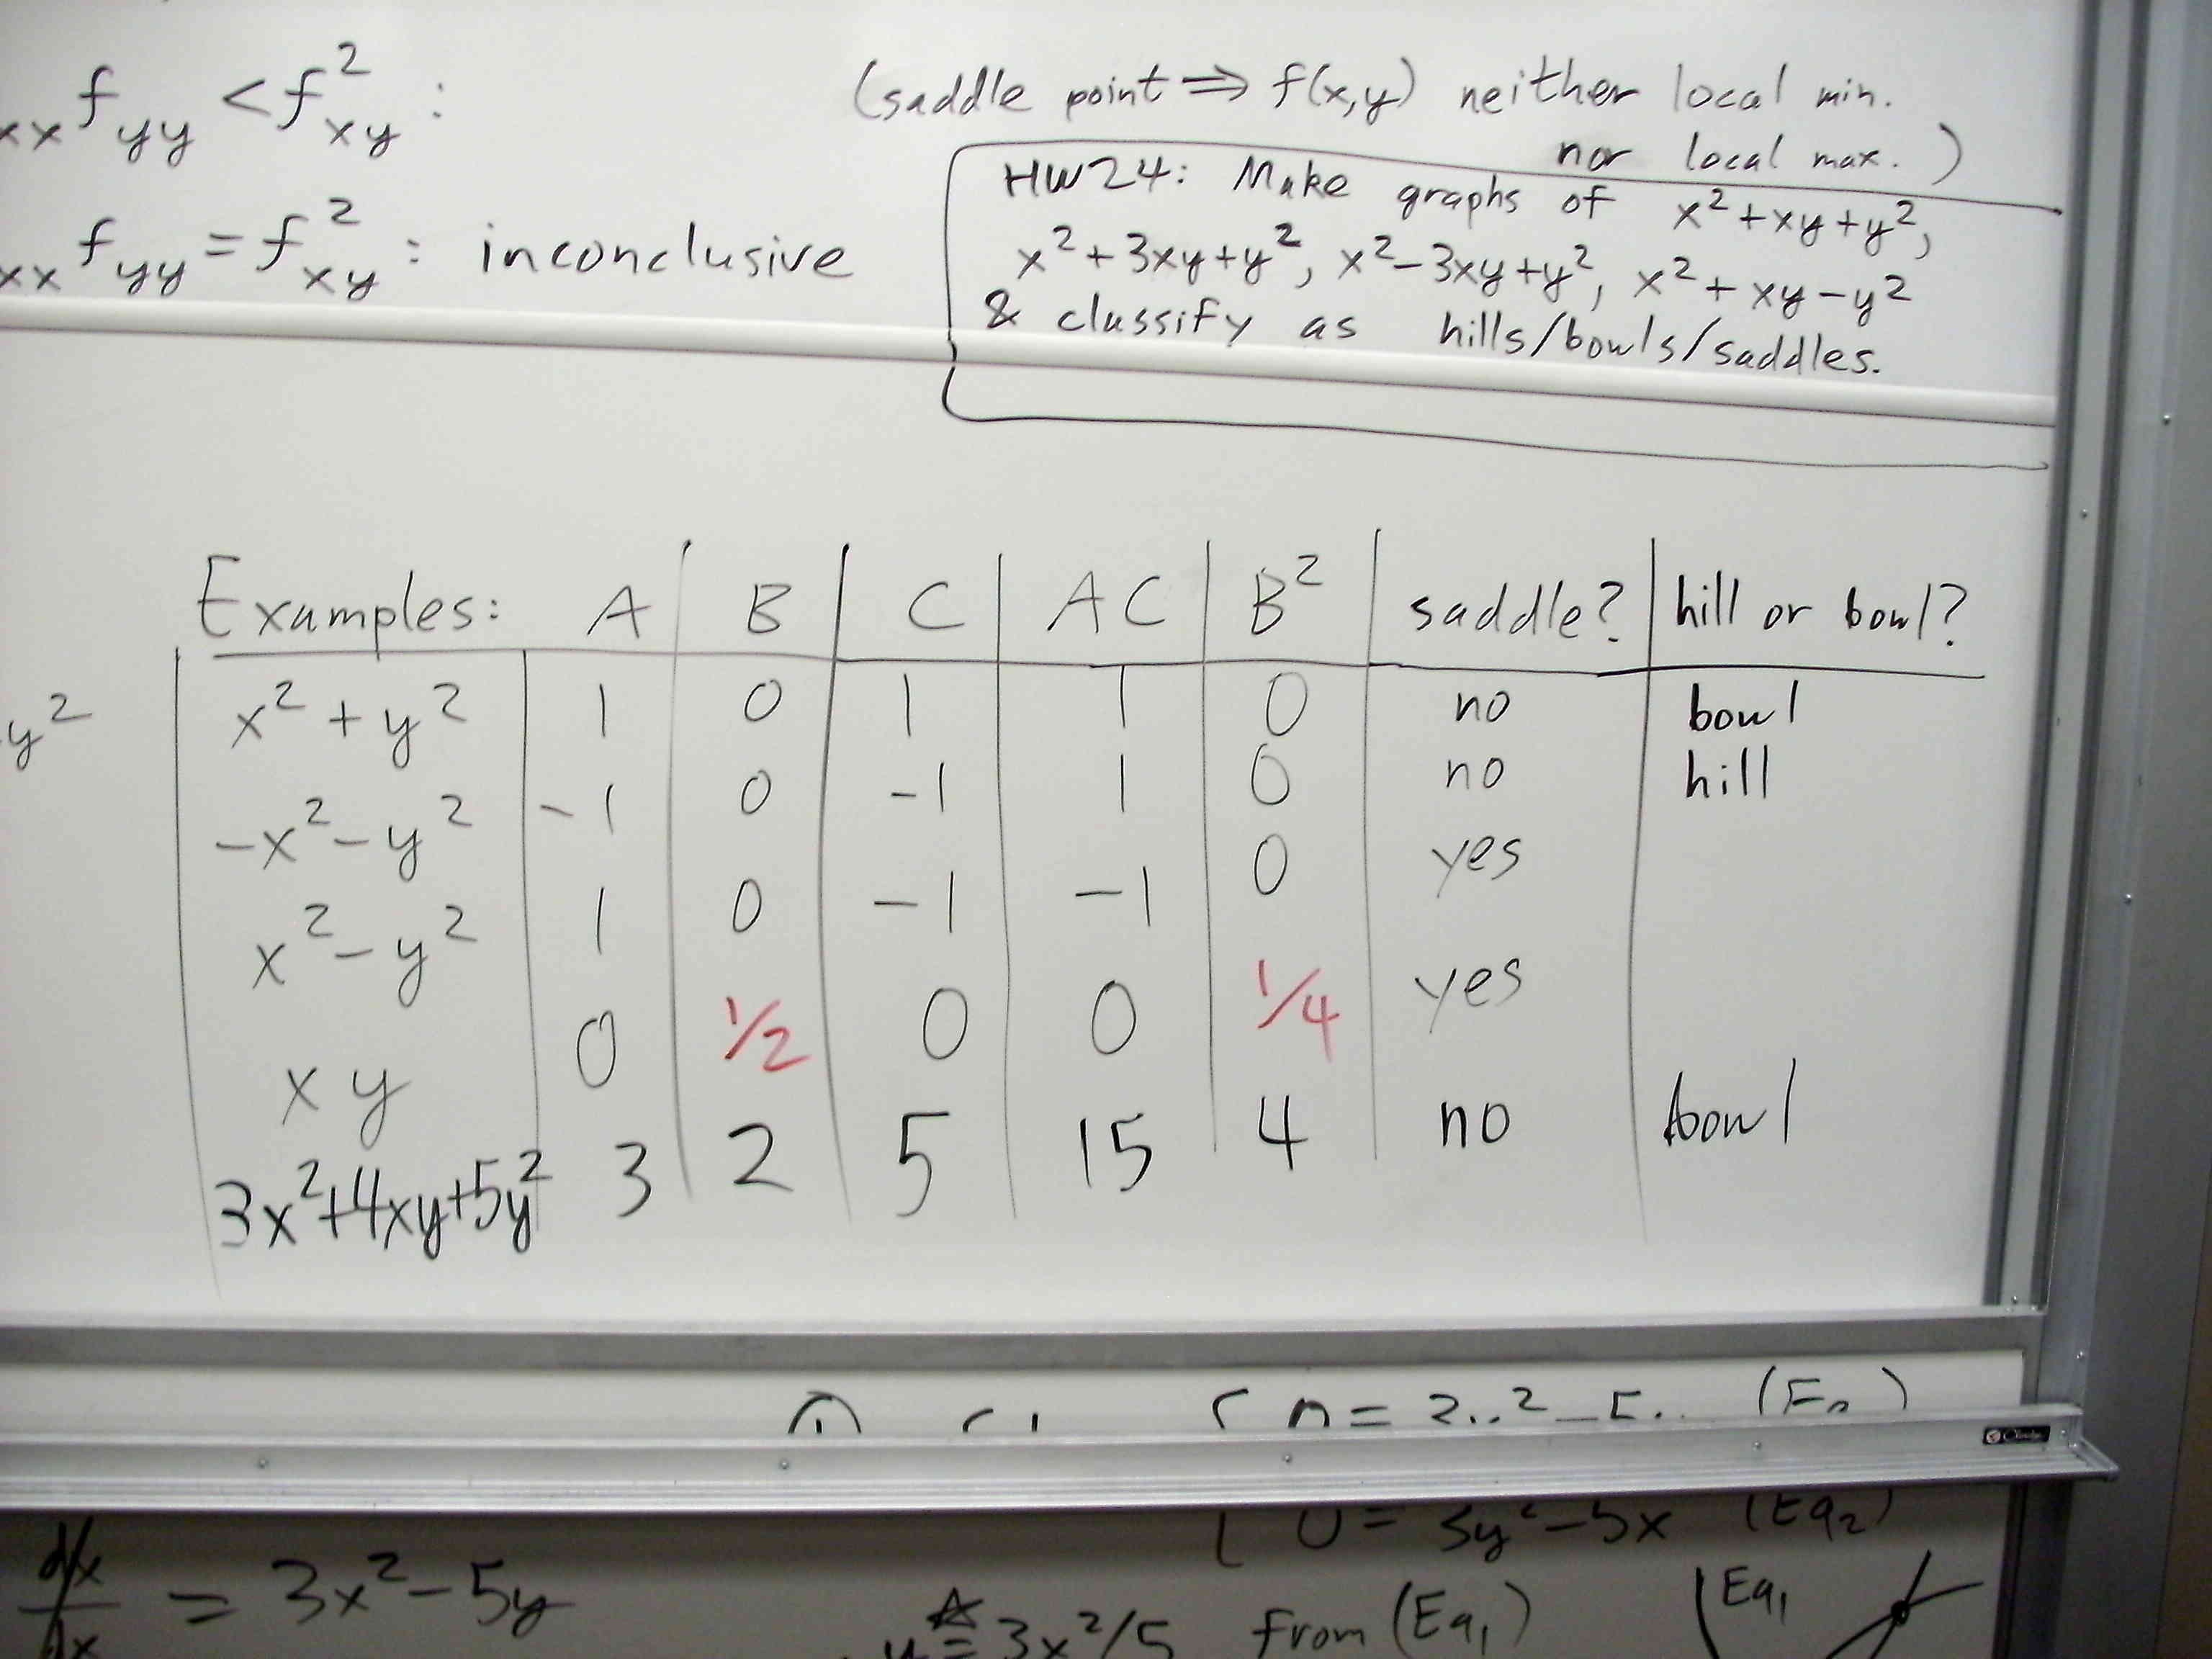 xx fyy < f²xy :
(saddle point ⇒ f(x,y) neither local min.
nor local max.)
xx fyy = f²xy : inconclusive
HW24: Make graphs of x²+xy+y²,
x²+3xy+y², x²-3xy+y², x²+xy-y²
& classify as hills/bowls/saddles.
y²
Examples: A B C AC B² saddle? hill or bowl?
x²+y² 1 0 1 1 0 no bowl
-x²-y² -1 0 -1 1 0 no hill
x²-y² 1 0 -1 -1 0 yes
xy 0 1/2 0 0 1/4 yes
3x²+4xy+5y² 3 2 5 15 4 no bowl
0 = 3y²-5x (Eq2)
= 3x²-5y
y = 3x²/5 from (Eq1)
Eq1